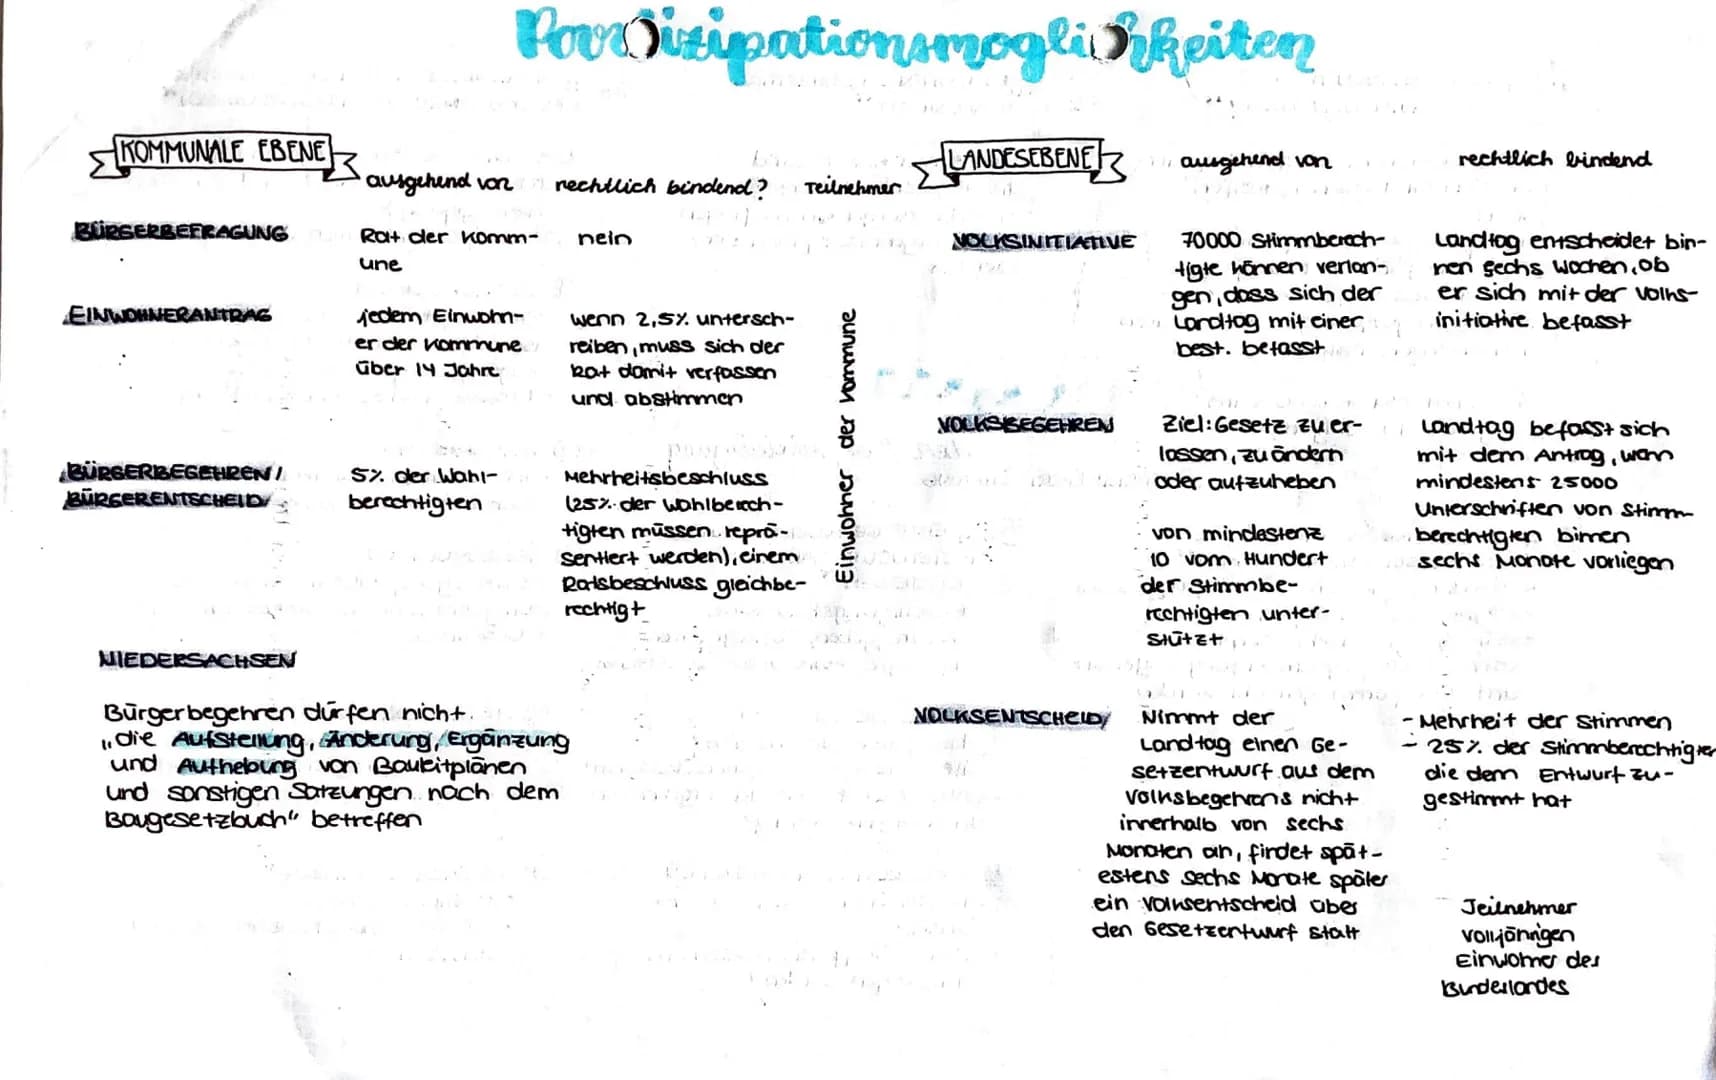 Partizipationsmöglichkeiten
KOMMUNALE EBENE
ausgehend von
rechtlich bindend?
Teilnehmer
BÜRGERBEFRAGUNG
Rat der Komm-
une
nein
EINWOHNERANTRAG
jedem Einwohn-
er der Kommune
über 14 Jahre
wenn 2,5% untersch-
reiben, muss sich der
Rat damit verfassen
und abstimmen
BÜRGERBEGEHREN/
BÜRGERENTSCHEID
5% der Wahl-
berechtigten
Mehrheitsbeschluss
(25% der Wahlberech-
tigten müssen reprä-
sentiert werden), einem
Ratsbeschluss gleichbe-
rechtigt
Einwohner der Kommune
NIEDERSACHSEN
Bürgerbegehren dürfen nicht
„die Aufstellung, Änderung, Ergänzung
und Aufhebung von Bauleitplänen
und sonstigen Satzungen nach dem
Baugesetzbuch" betreffen
LANDESEBENE
ausgehend von
rechtlich bindend
VOLKSINITIATIVE
70000 Stimmberech-
tigte können verlan-
gen, dass sich der
Landtag mit einer
best. befasst
Landtag entscheidet bin-
nen sechs Wochen, ob
er sich mit der Volks-
initiative befasst
VOLKSBEGEHREN
Ziel: Gesetz zu er-
lassen, zu ändern
oder aufzuheben
von mindestenz
10 vom Hundert
der Stimmbe-
rechtigten unter-
stützt
Landtag befasst sich
mit dem Antrag, wann
mindestens 25000
Unterschriften von Stimm-
berechtigten binnen
sechs Monate vorliegen
VOLKSENTSCHEID
Nimmt der
Landtag einen Ge-
setzentwurf aus dem
Volksbegehrens nicht
innerhalb von sechs
Monaten an, findet spät-
estens sechs Monate später
ein Volksentscheid über
den Gesetzentwurf statt
- Mehrheit der Stimmen
- 25% der Stimmberechtigten
die dem Entwurf zu-
gestimmt hat
Teilnehmer
volljährigen
Einwohner des
Bundeslandes